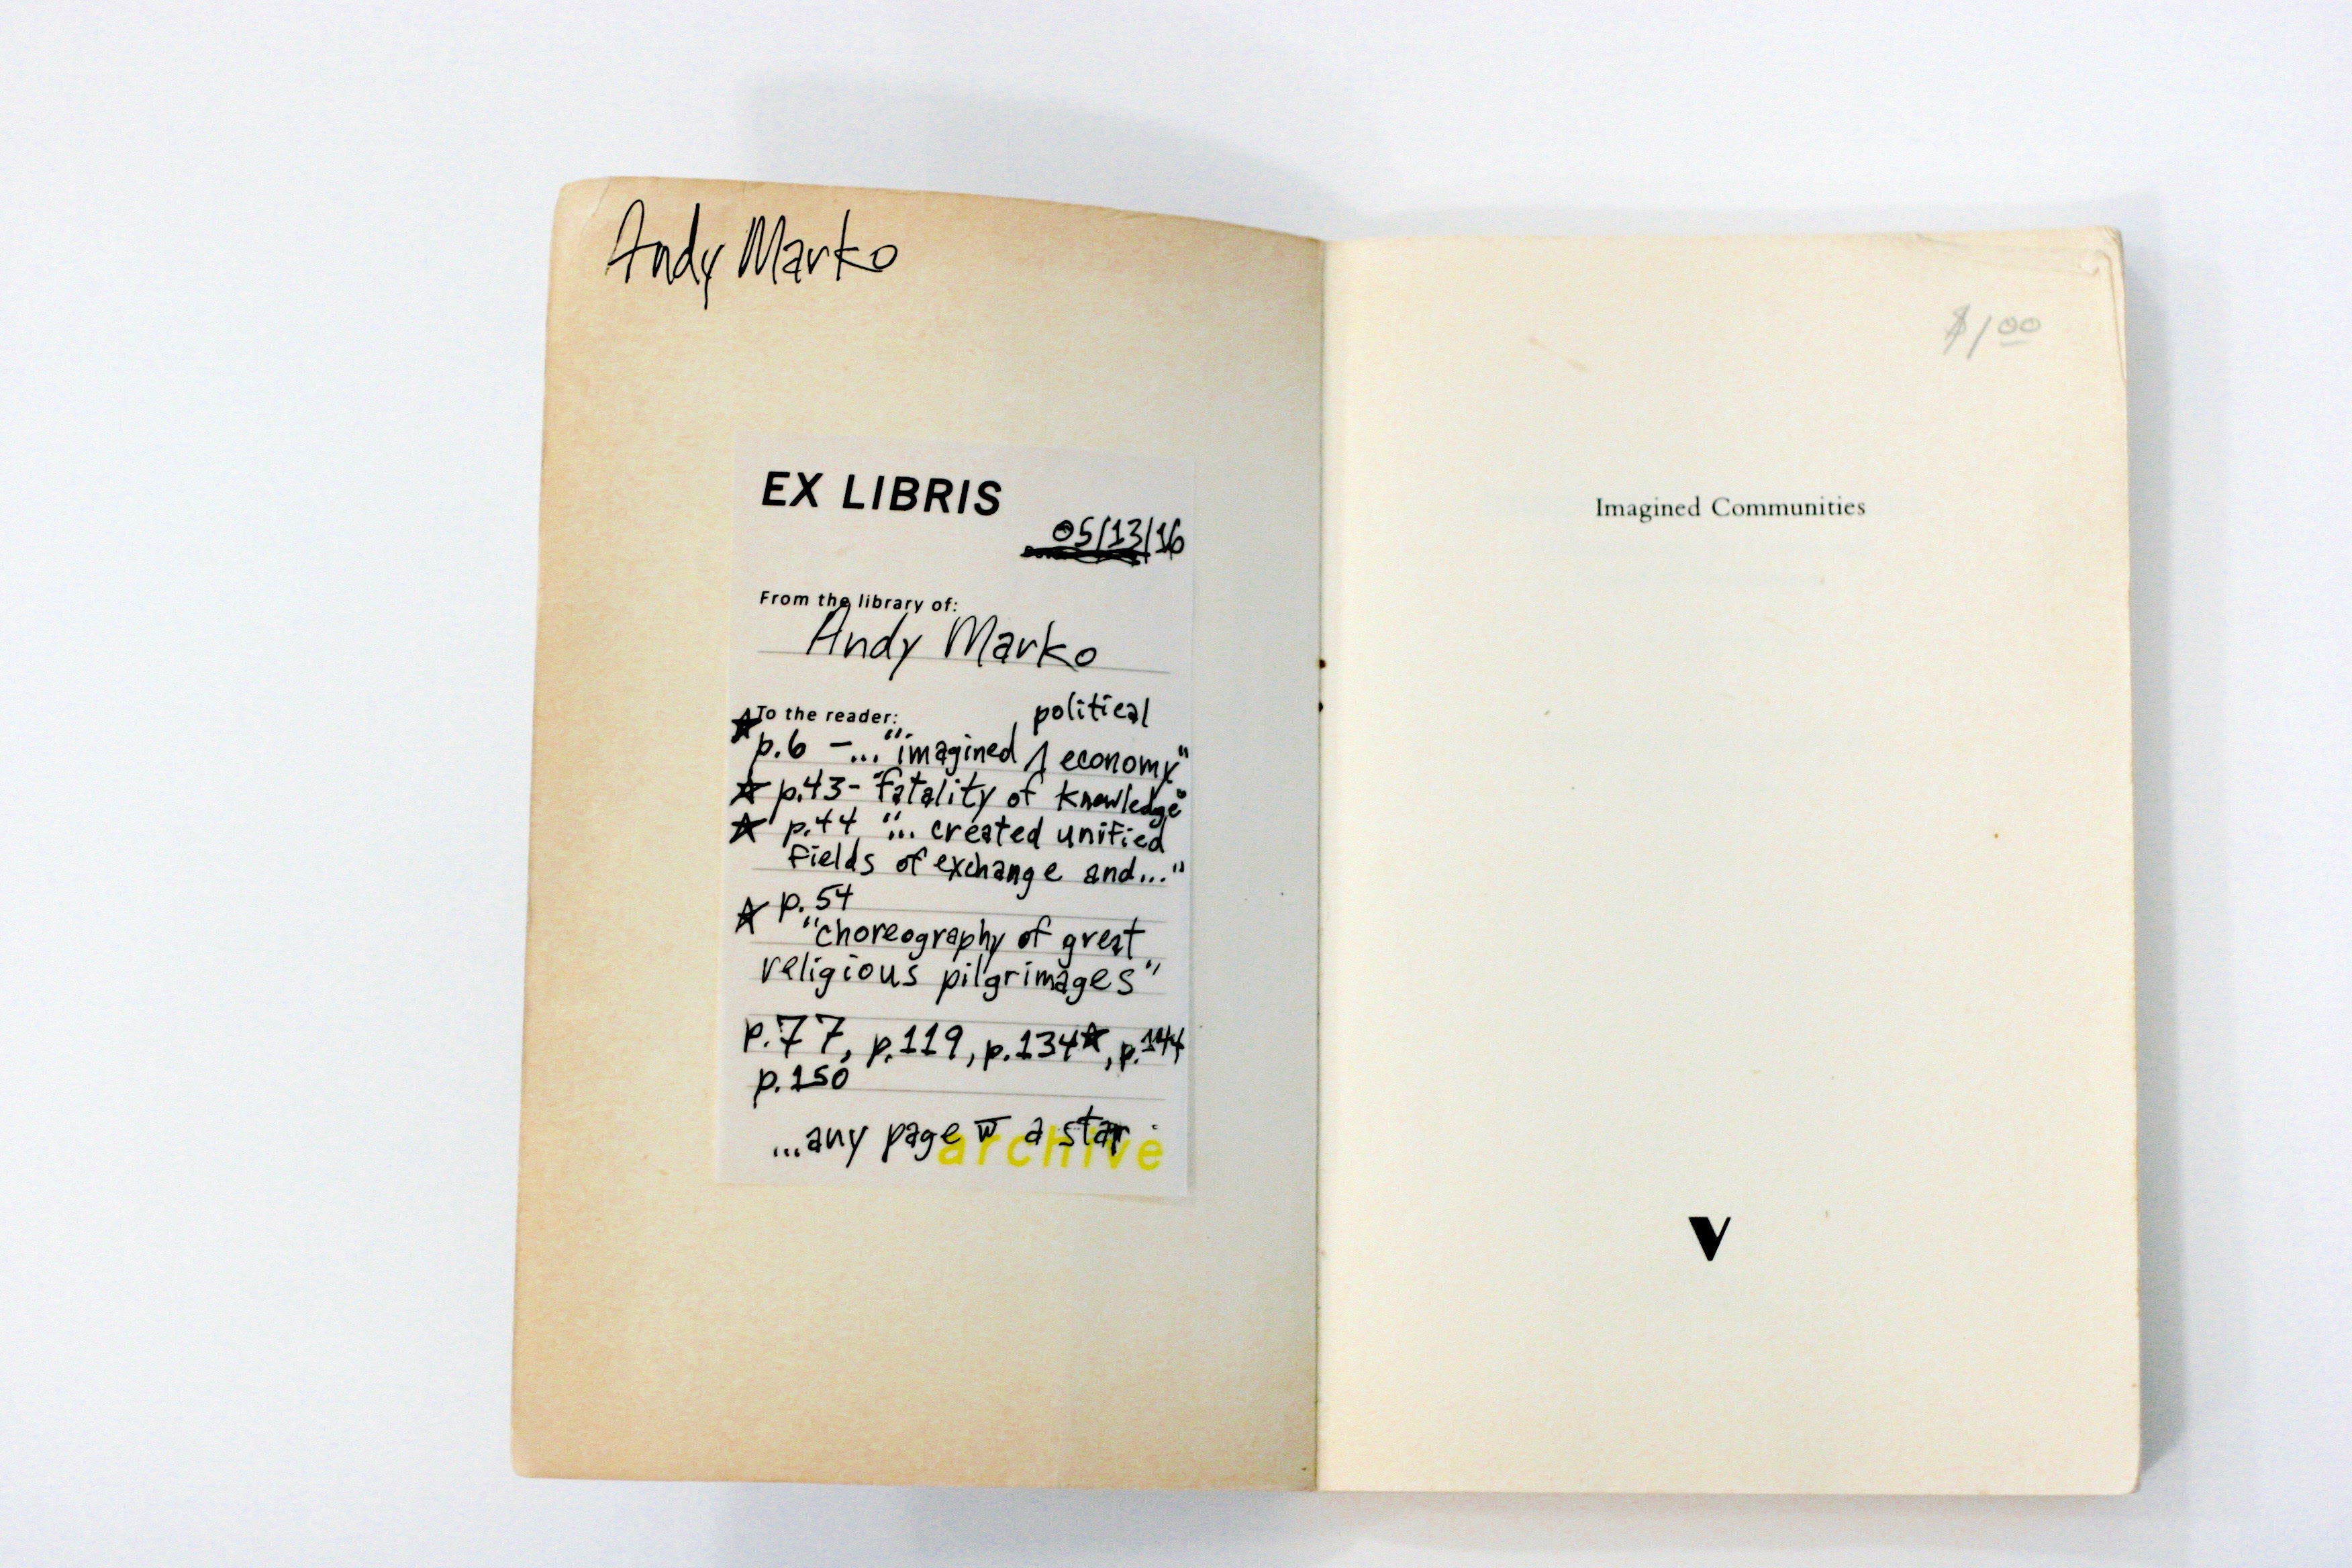 Andy Marko
EX LIBRIS
05/13/16
From the library of:
Andy Marko
To the reader:
political
★ p.6 – ... "imagined ∧ economy"
☆ p.43 - fatality of knowledge"
☆ p.44 "... created unified
fields of exchange and..."
☆ p.54
"choreography of great
religious pilgrimages"
p.77, p.119, p.134☆, p.144
p.150
...any page w a star
archive
$1.00
Imagined Communities
V